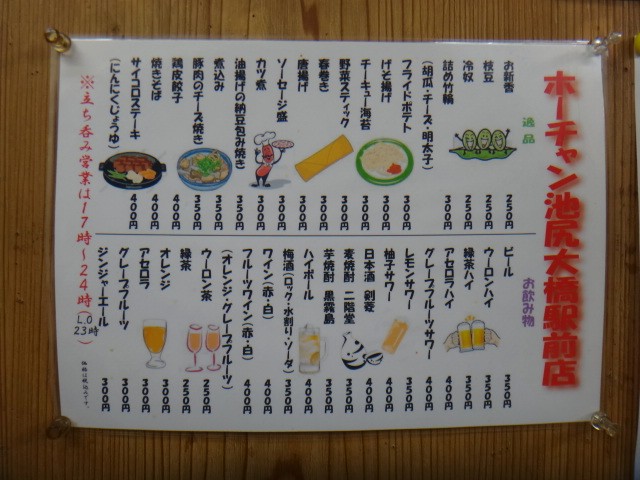 ホーチャン池尻大橋駅前店
逸品
お新香 250円
枝豆 250円
冷奴 250円
詰め竹輪 300円
(胡瓜・チーズ・明太子)
フライドポテト 300円
げそ揚げ 300円
チーキュー海苔 300円
野菜スティック 300円
春巻き 300円
唐揚げ 300円
ソーセージ盛 300円
カツ煮 300円
油揚げの納豆包み焼き 350円
煮込み 350円
豚肉のチーズ焼き 350円
鶏皮餃子 400円
焼きそば 400円
サイコロステーキ 400円
(にんにくじょうゆ)
お飲み物
ビール 350円
ウーロンハイ 350円
緑茶ハイ 350円
アセロラハイ 400円
グレープフルーツサワー 400円
レモンサワー 350円
柚子サワー 400円
日本酒 剣菱 400円
麦焼酎 二階堂 350円
芋焼酎 黒霧島 350円
ハイボール 400円
梅酒(ロック・水割り・ソーダ) 350円
ワイン(赤・白) 400円
フルーツワイン(赤・白) 400円
(オレンジ・グレープフルーツ)
ウーロン茶 250円
緑茶 250円
オレンジ 300円
アセロラ 300円
グレープフルーツ 300円
ジンジャーエール 300円
※立ち呑み営業は17時~24時(L.O 23時)
価格は税込みです。